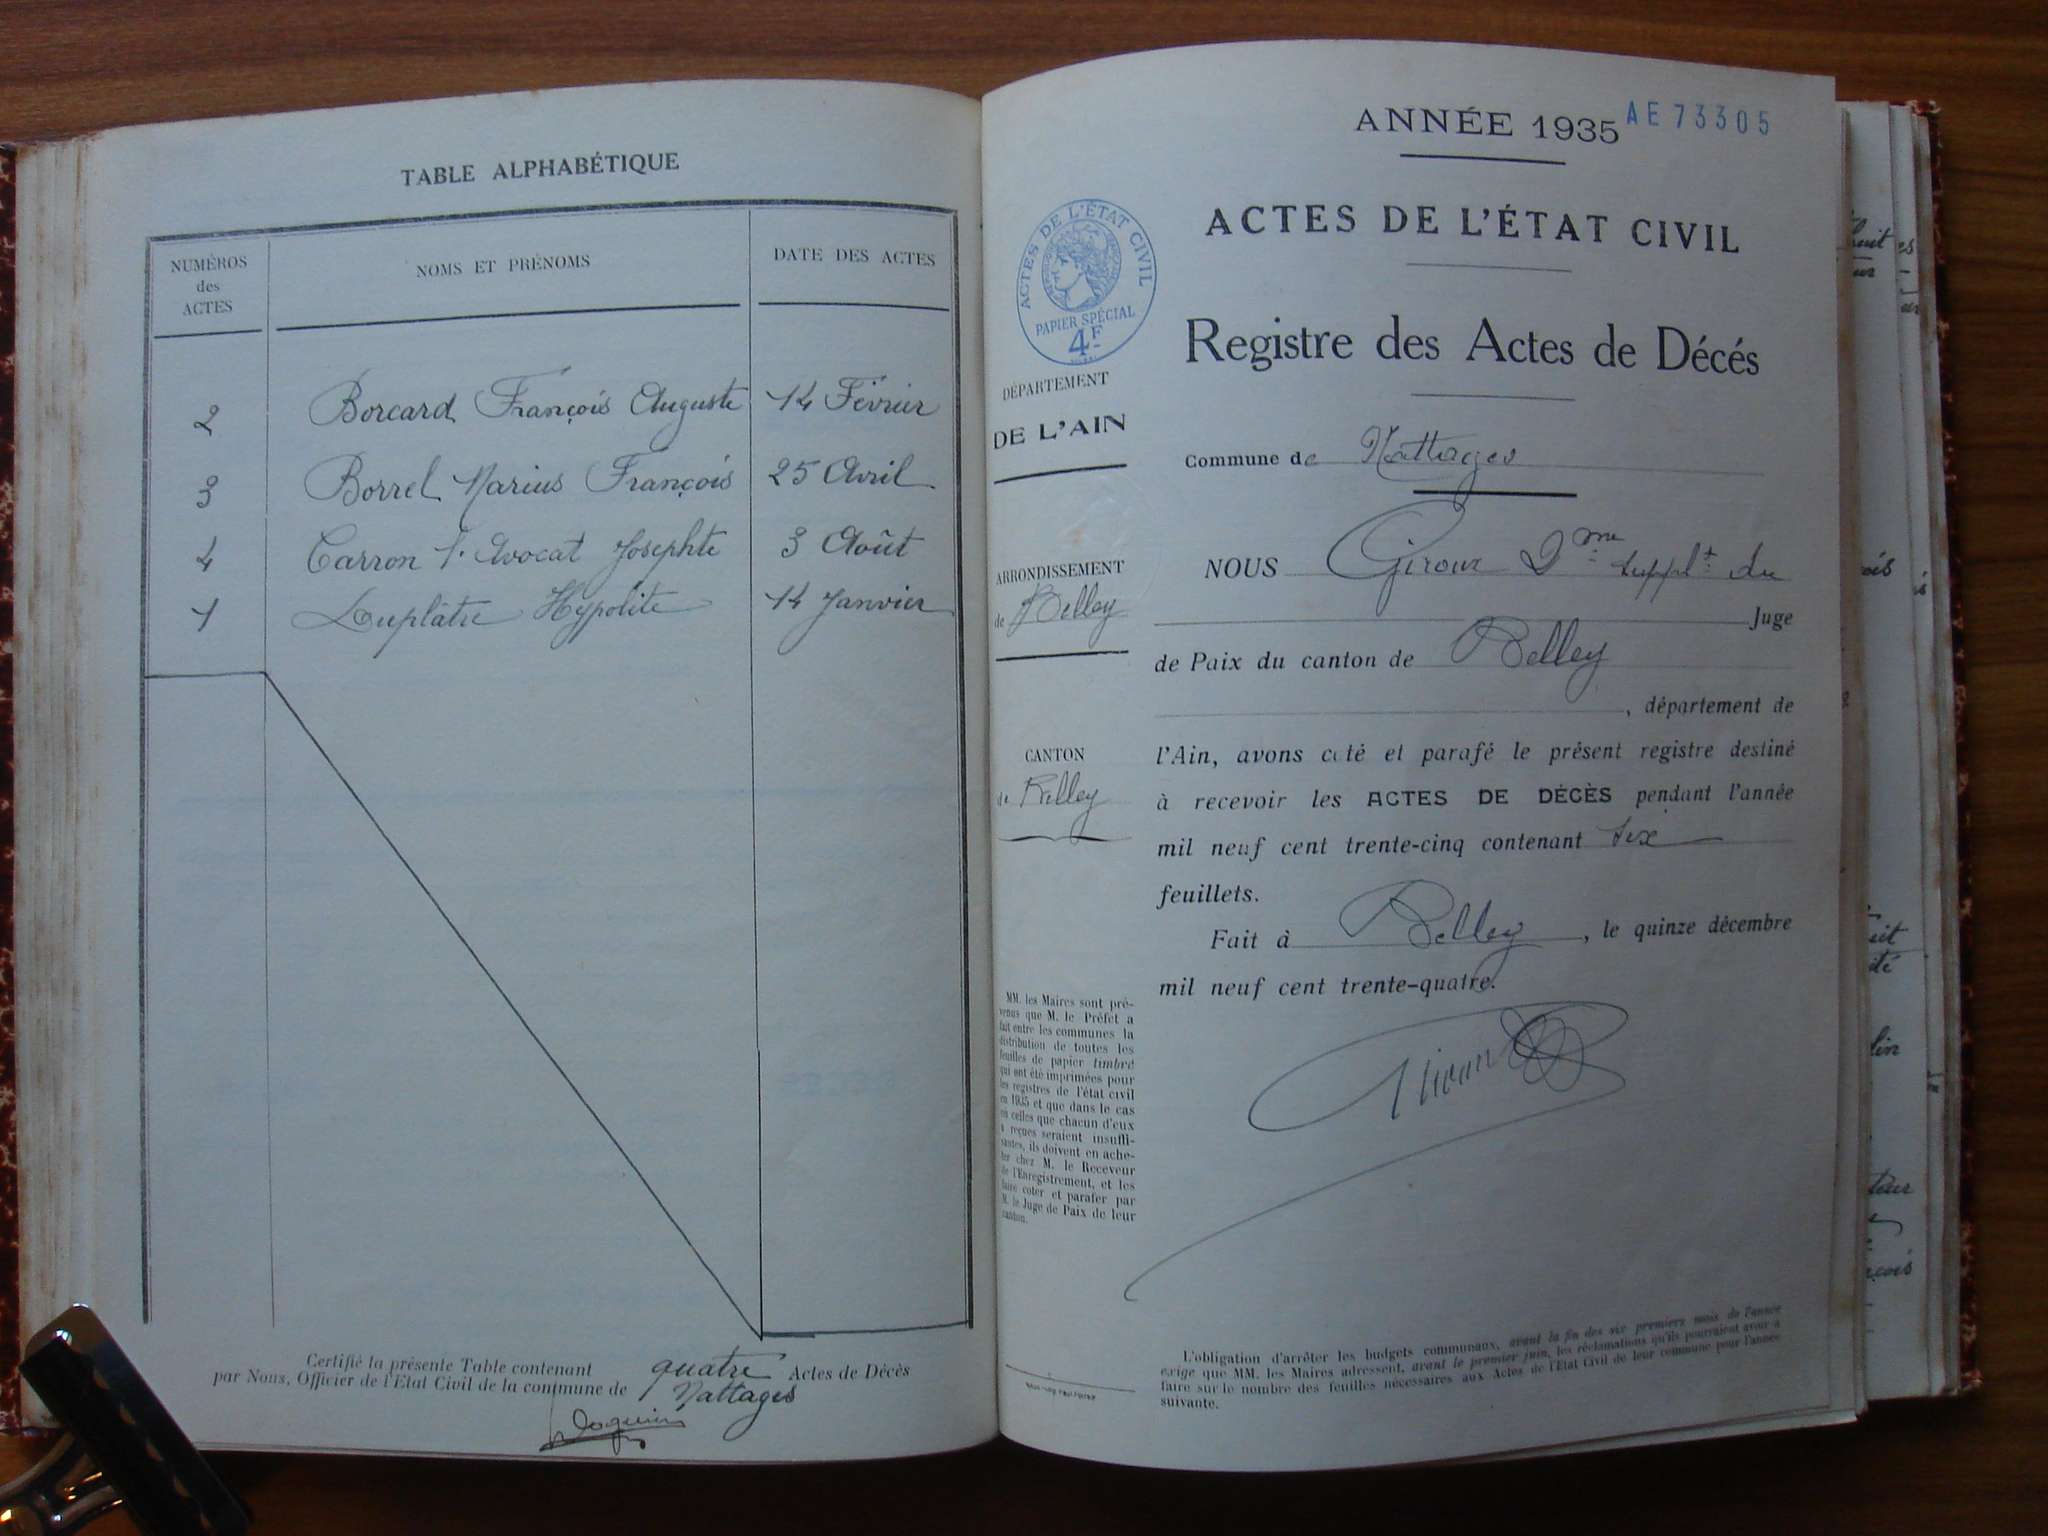 TABLE ALPHABÉTIQUE
NUMÉROS
des
ACTES
NOMS ET PRÉNOMS
DATE DES ACTES
2 Borcard François Auguste 14 Février
3 Borrel Marius François 25 Avril
4 Carron l'Avocat Josephte 3 Août
1 Duplâtre Hypolite 14 Janvier
Certifié la présente Table contenant quatre Actes de Décès
par Nous, Officier de l'Etat Civil de la commune de Nattages
ANNÉE 1935
AE 73305
ACTES DE L'ÉTAT CIVIL
ACTES DE L'ÉTAT CIVIL
PAPIER SPÉCIAL
4F
Registre des Actes de Décés
DÉPARTEMENT
DE L'AIN
Commune de Nattages
ARRONDISSEMENT
de Belley
CANTON
de Belley
NOUS Giroux 2me supplt du
Juge
de Paix du canton de Belley
, département de
l'Ain, avons coté et parafé le présent registre destiné
à recevoir les ACTES DE DÉCÈS pendant l'année
mil neuf cent trente-cinq contenant six
feuillets.
Fait à Belley, le quinze décembre
mil neuf cent trente-quatre.
MM. les Maires sont pré-
venus que M. le Préfet a
fait entre les communes la
distribution de toutes les
feuilles de papier timbré
qui ont été imprimées pour
les registres de l'état civil
en 1935 et que dans le cas
où celles que chacun d'eux
a reçues seraient insuffi-
santes, ils doivent en ache-
ter chez M. le Receveur
de l'Enregistrement, et les
faire coter et parafer par
M. le Juge de Paix de leur
canton.
L'obligation d'arrêter les budgets communaux, avant la fin des six premiers mois de l'année
exige que MM. les Maires adressent, avant le premier juin, les réclamations qu'ils pourraient avoir à
faire sur le nombre des feuilles nécessaires aux Actes de l'Etat Civil de leur commune pour l'année
suivante.